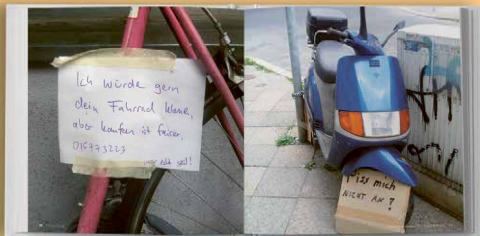 Ich würde gern
dein Fahrrad klauen,
aber kaufen ist fairer.
016773223
Piss mich
NICHT AN?